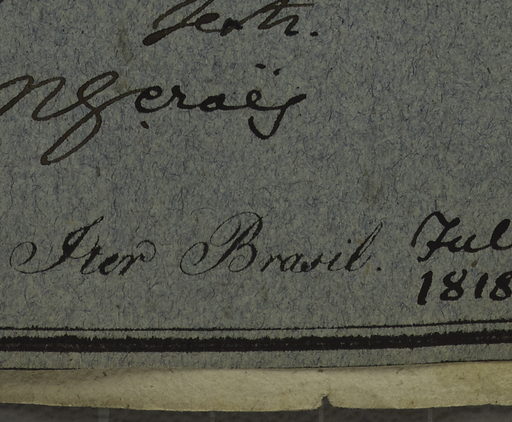 Ngeraës
Iter Brasil. Jul
1818